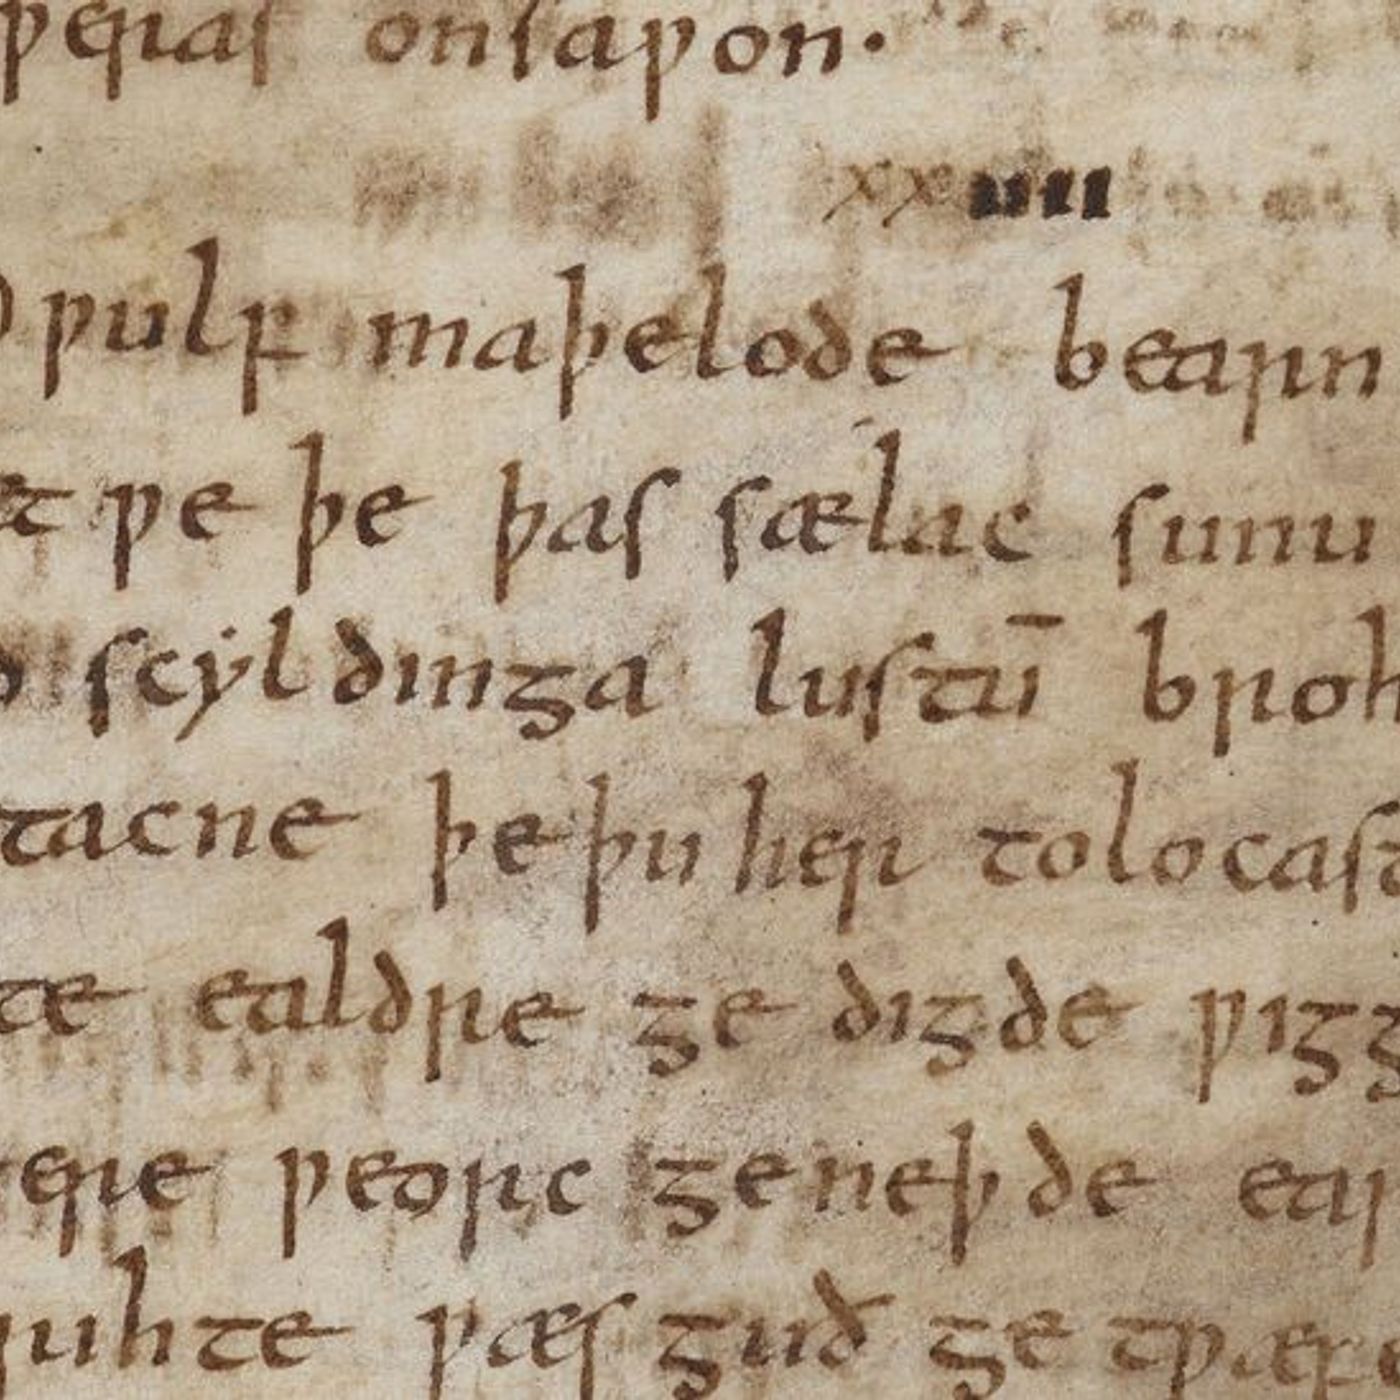 ƿeras onsaƿon·
xxiiii
ƿulf maþelode bearn
ƿe þe þas sælac sunu
scyldinga lustū broh
tacne þe þu her tolocast
ealdre ge digde ƿigg
ƿeorc geneþde ear
uhte ƿæs guð ge tƿæfe